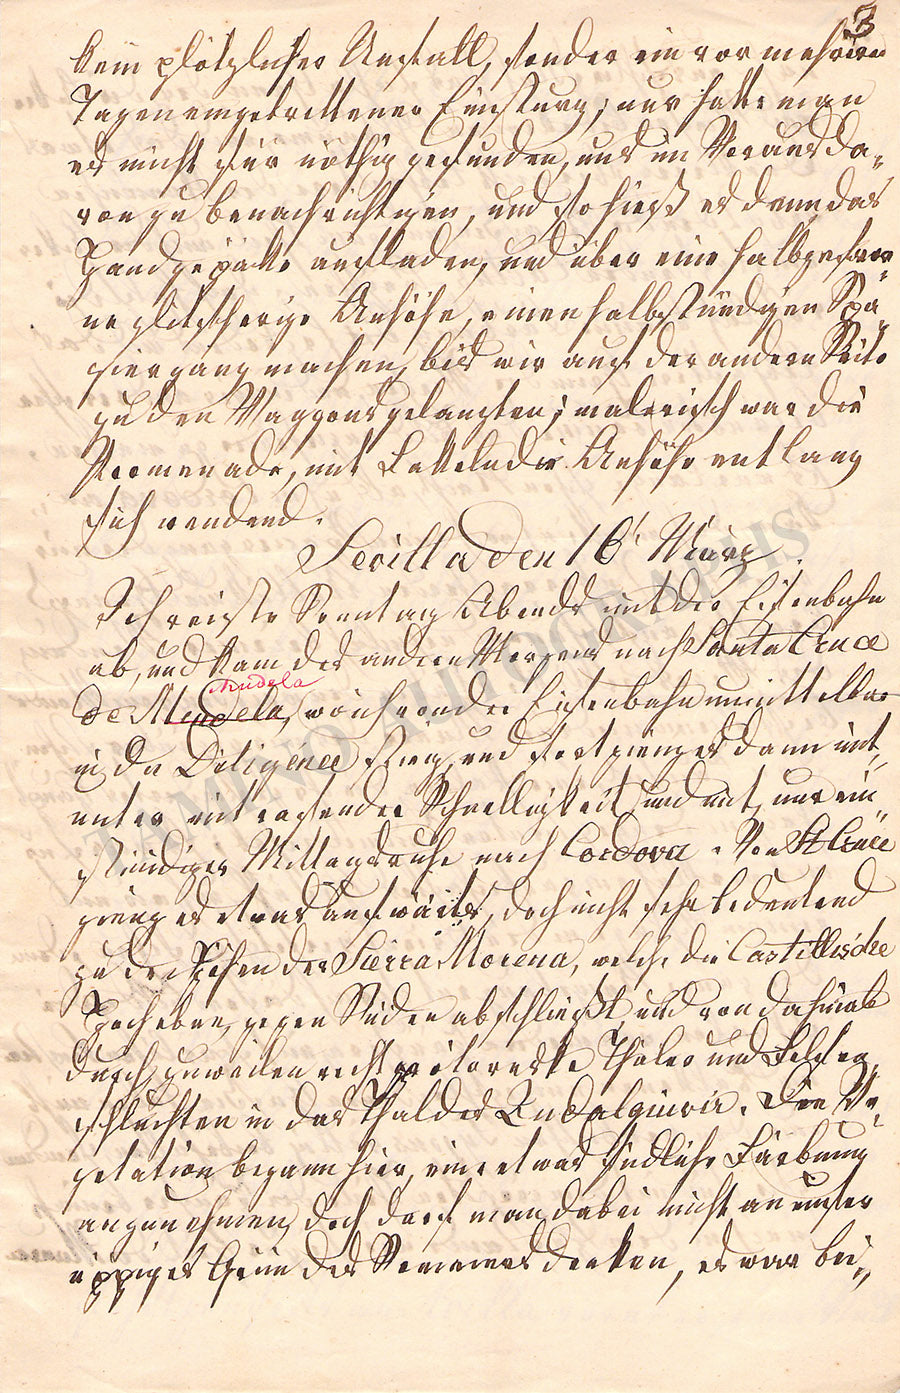 3
kein plötzlicher Unfall, sonder ein vor mehrern
Tagen eingetrettener Einsturz; nur hatte man
es nicht für nöthig gefunden, uns im Voraus da-
von zu benachrichtigen, und so hieß es denn das
Handgepäke aufladen, und über eine halbgefror-
ne glitscherige Anhöhe, einen halbstündigen Spa-
siergang machen, bis wir auf der andern Seite
zu den Waggons gelangten; malerisch war die
Promenade, mit die Anhöhe entlang
sich wendend.
Sevilla den 16t März.
Ich reiste Sonntag Abends mit der Eisenbahn
ab, und kam des andern Morgens nach Santa Cruce
Mudela
de Mudela, wo ich von der Eisenbahn unmittelbar
in die Diligence stieg, und fort gieng es dann mit,
unter mit rasender Schnelligkeit, und mit nur ein
stündiger Mittagsruhe nach Cordova. Von St Cruce
gieng es etwas aufwärts, doch nicht sehr bedeutend
zu den Höhen der Sierra Morena, welche die Castillische
Hochebene, gegen Süden abschließt, und von da hinab
durch, zuweilen recht pitoreske Thäler und Felsen
schluchten in das Thal des Quadalquivir. Die Ve-
getation begann hier, eine etwas südliche Färbung
anzunehmen, doch darf man dabei nicht an unser
üppiges Grün des Sommers denken, es war bei,,
DOMINO AUTOGRAPHS